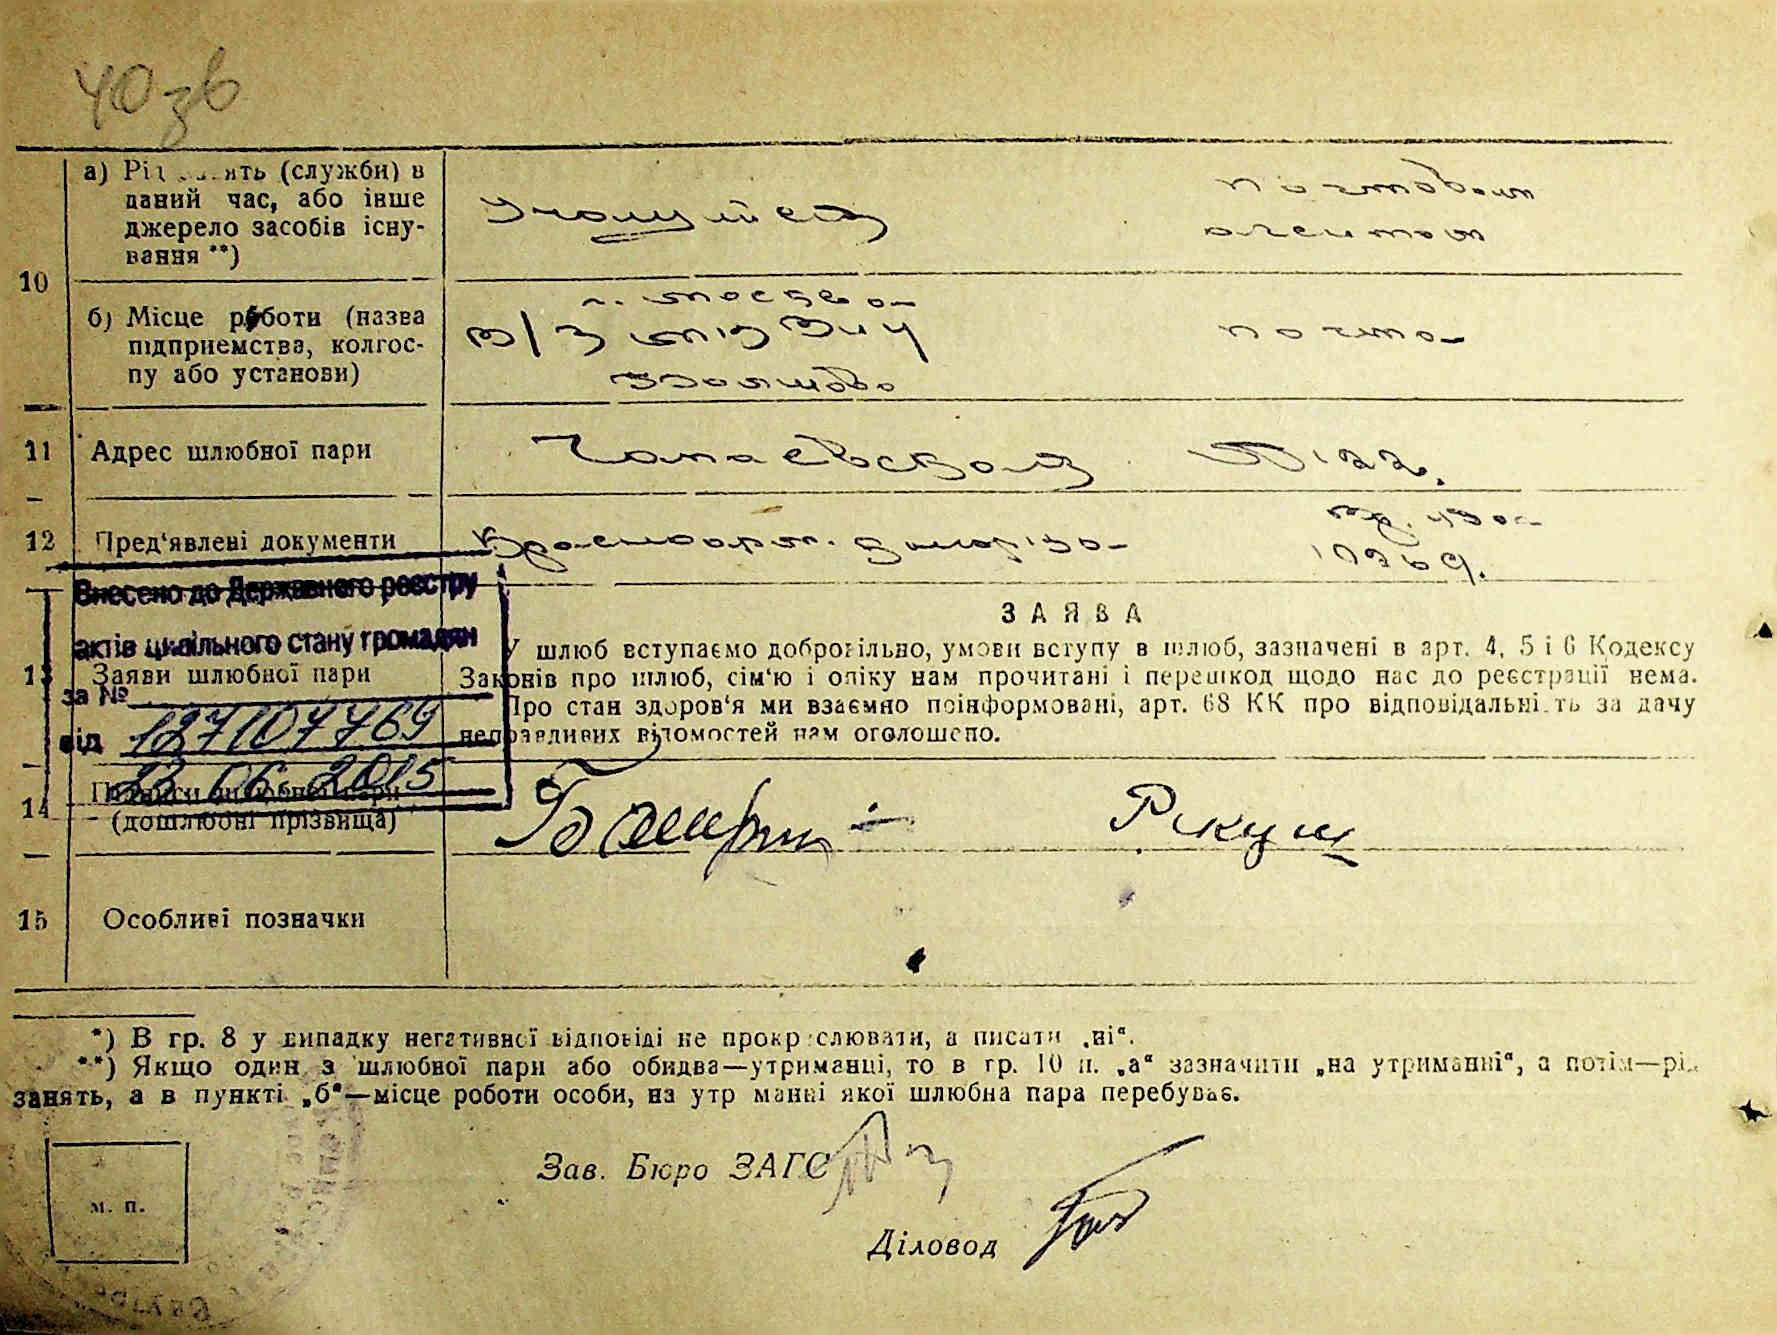 40 зв
а) Рід занять (служби) в
даний час, або інше
джерело засобів існу-
вання **)
Учащийся
почтовый
агент
10
б) Місце роботи (назва
підприємства, колгос-
пу або установи)
г. Москва
почта
11 Адрес шлюбної пари
Чапаевская № 122.
12 Пред'явлені документи
Красноарм.
Внесено до Державного реєстру
актів цивільного стану громадян
за №
від 127107769
23.06.2015
З А Я В А
13 Заяви шлюбної пари
У шлюб вступаємо добровільно, умови вступу в шлюб, зазначені в арт. 4, 5 і 6 Кодексу
Законів про шлюб, сім'ю і опіку нам прочитані і перешкод щодо нас до реєстрації нема.
Про стан здоров'я ми взаємно поінформовані, арт. 68 КК про відповідальність за дачу
неправдивих відомостей нам оголошено.
14 Підписи шлюбної пари
(дошлюбні прізвища)
15 Особливі позначки
*) В гр. 8 у випадку негативної відповіді не прокреслювати, а писати „ні“.
**) Якщо один з шлюбної пари або обидва—утриманці, то в гр. 10 п. „а“ зазначити „на утриманні“, а потім—рід
занять, а в пункті „б“—місце роботи особи, на утриманні якої шлюбна пара перебуває.
Зав. Бюро ЗАГС
м. п.
Діловод